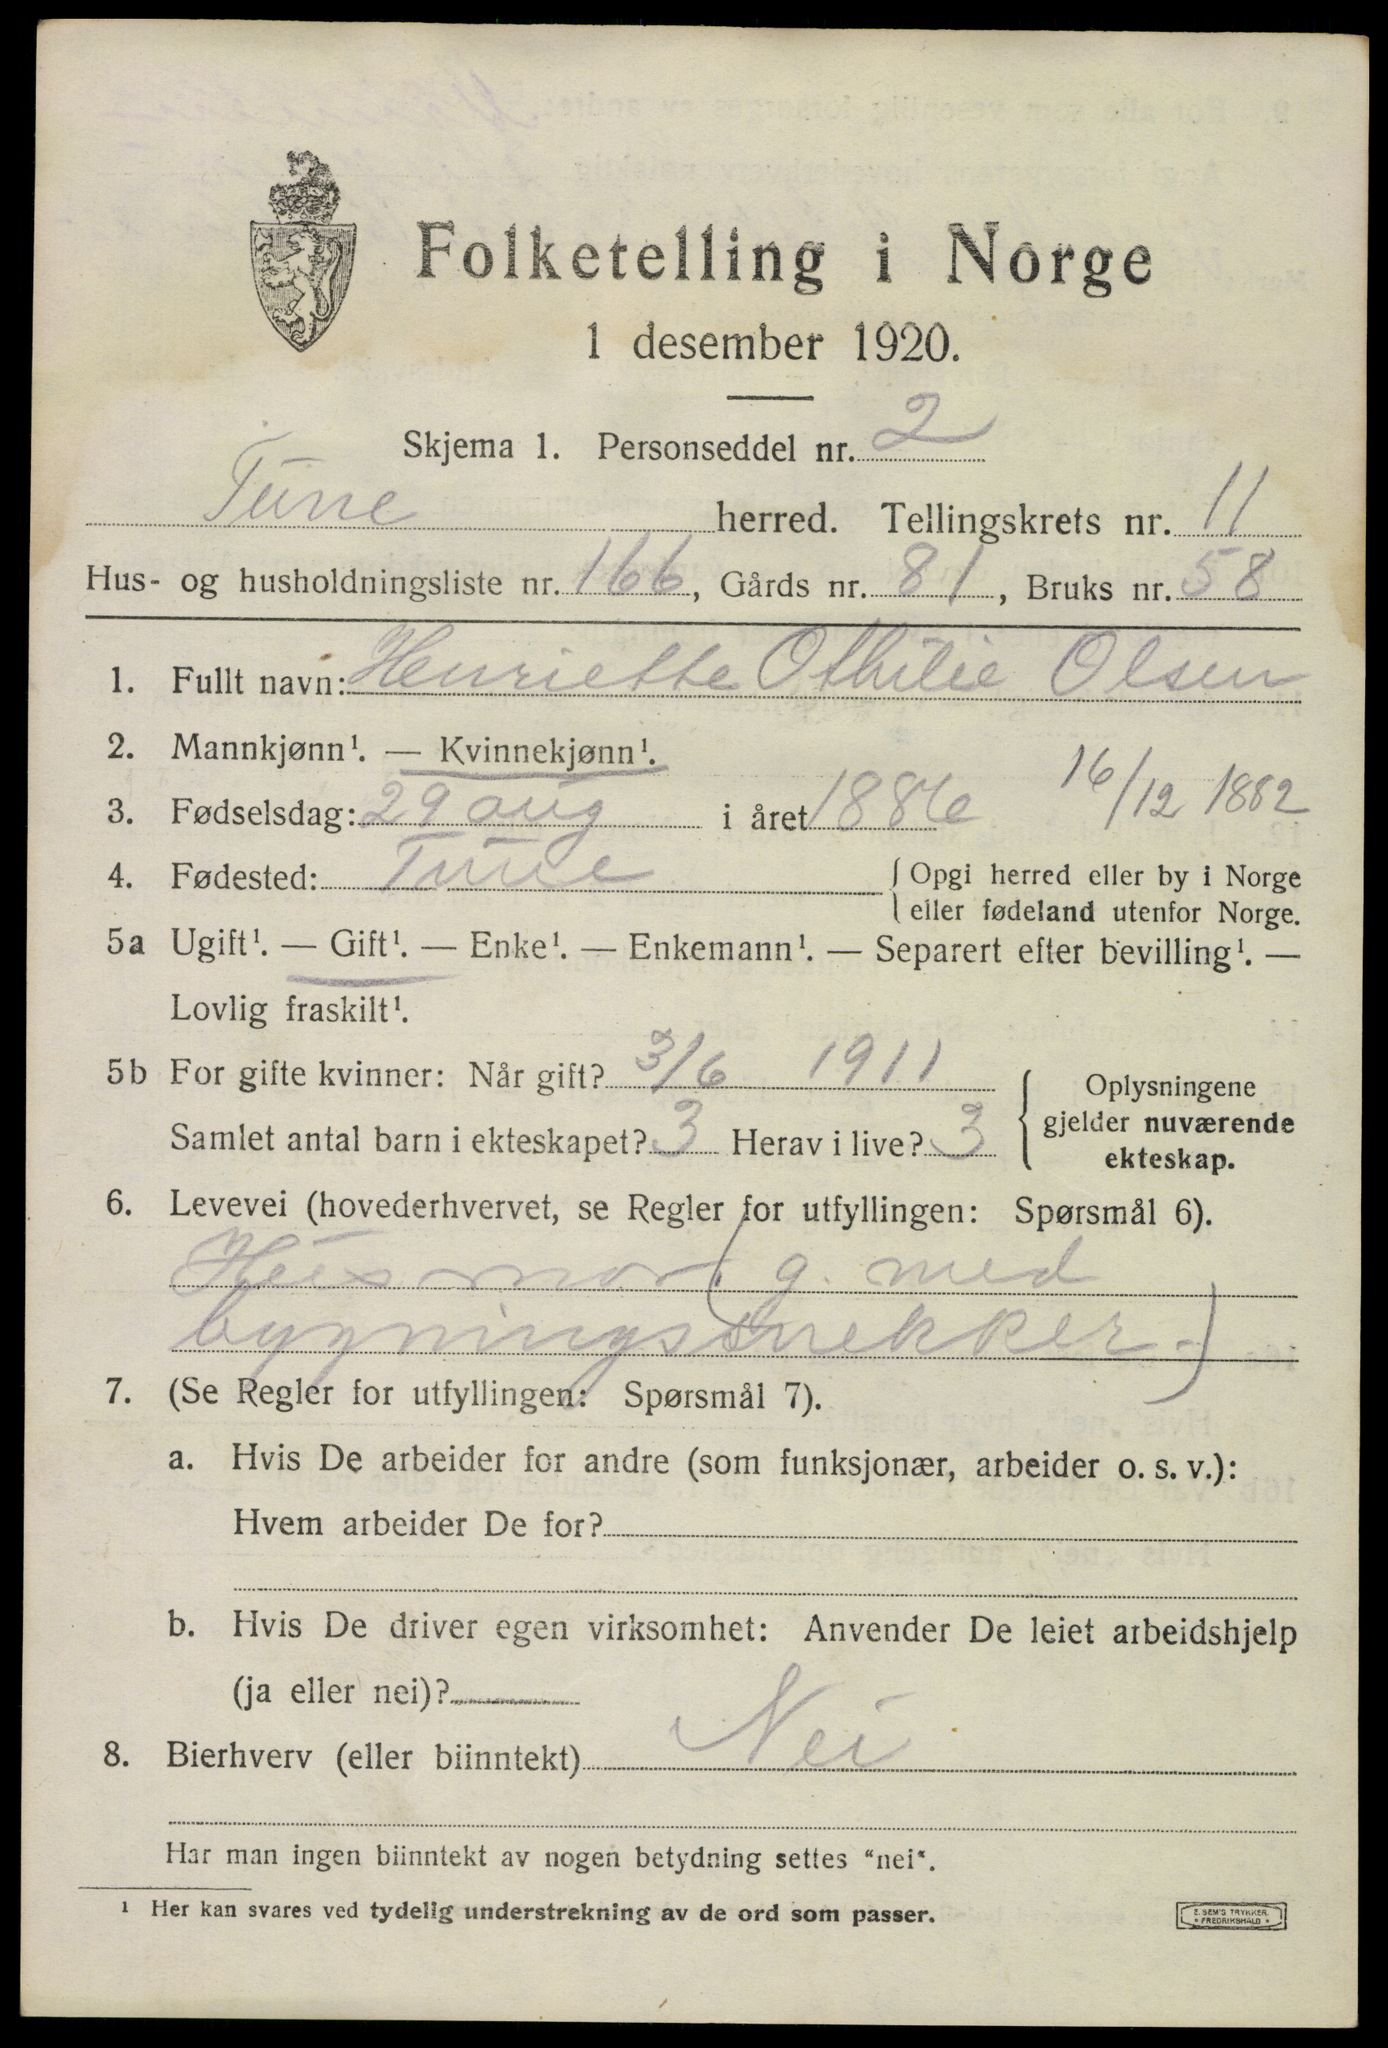 Folketelling i Norge
1 desember 1920.
Skjema 1. Personseddel nr. 2
Tune herred. Tellingskrets nr. 11
Hus- og husholdningsliste nr. 166, Gårds nr. 81, Bruks nr. 58
1. Fullt navn: Henriette Othilie Olsen
2. Mannkjønn¹. — Kvinnekjønn¹.
3. Fødselsdag: 29 aug i året 1886 16/12 1882
4. Fødested: Tune { Opgi herred eller by i Norge
eller fødeland utenfor Norge.
5a Ugift¹. — Gift¹. — Enke¹. — Enkemann¹. — Separert efter bevilling¹. —
Lovlig fraskilt¹.
5b For gifte kvinner: Når gift? 3/6 1911
Samlet antal barn i ekteskapet? 3 Herav i live? 3
{ Oplysningene
gjelder nuværende
ekteskap.
6. Levevei (hovederhvervet, se Regler for utfyllingen: Spørsmål 6).
Husmor (g. med
bygningssnekker.)
7. (Se Regler for utfyllingen: Spørsmål 7).
a. Hvis De arbeider for andre (som funksjonær, arbeider o. s. v.):
Hvem arbeider De for?
b. Hvis De driver egen virksomhet: Anvender De leiet arbeidshjelp
(ja eller nei)?
8. Bierhverv (eller biinntekt) Nei
Har man ingen biinntekt av nogen betydning settes "nei".
¹ Her kan svares ved tydelig understrekning av de ord som passer.
E. SEM'S TRYKKERI
* FREDRIKSHALD *